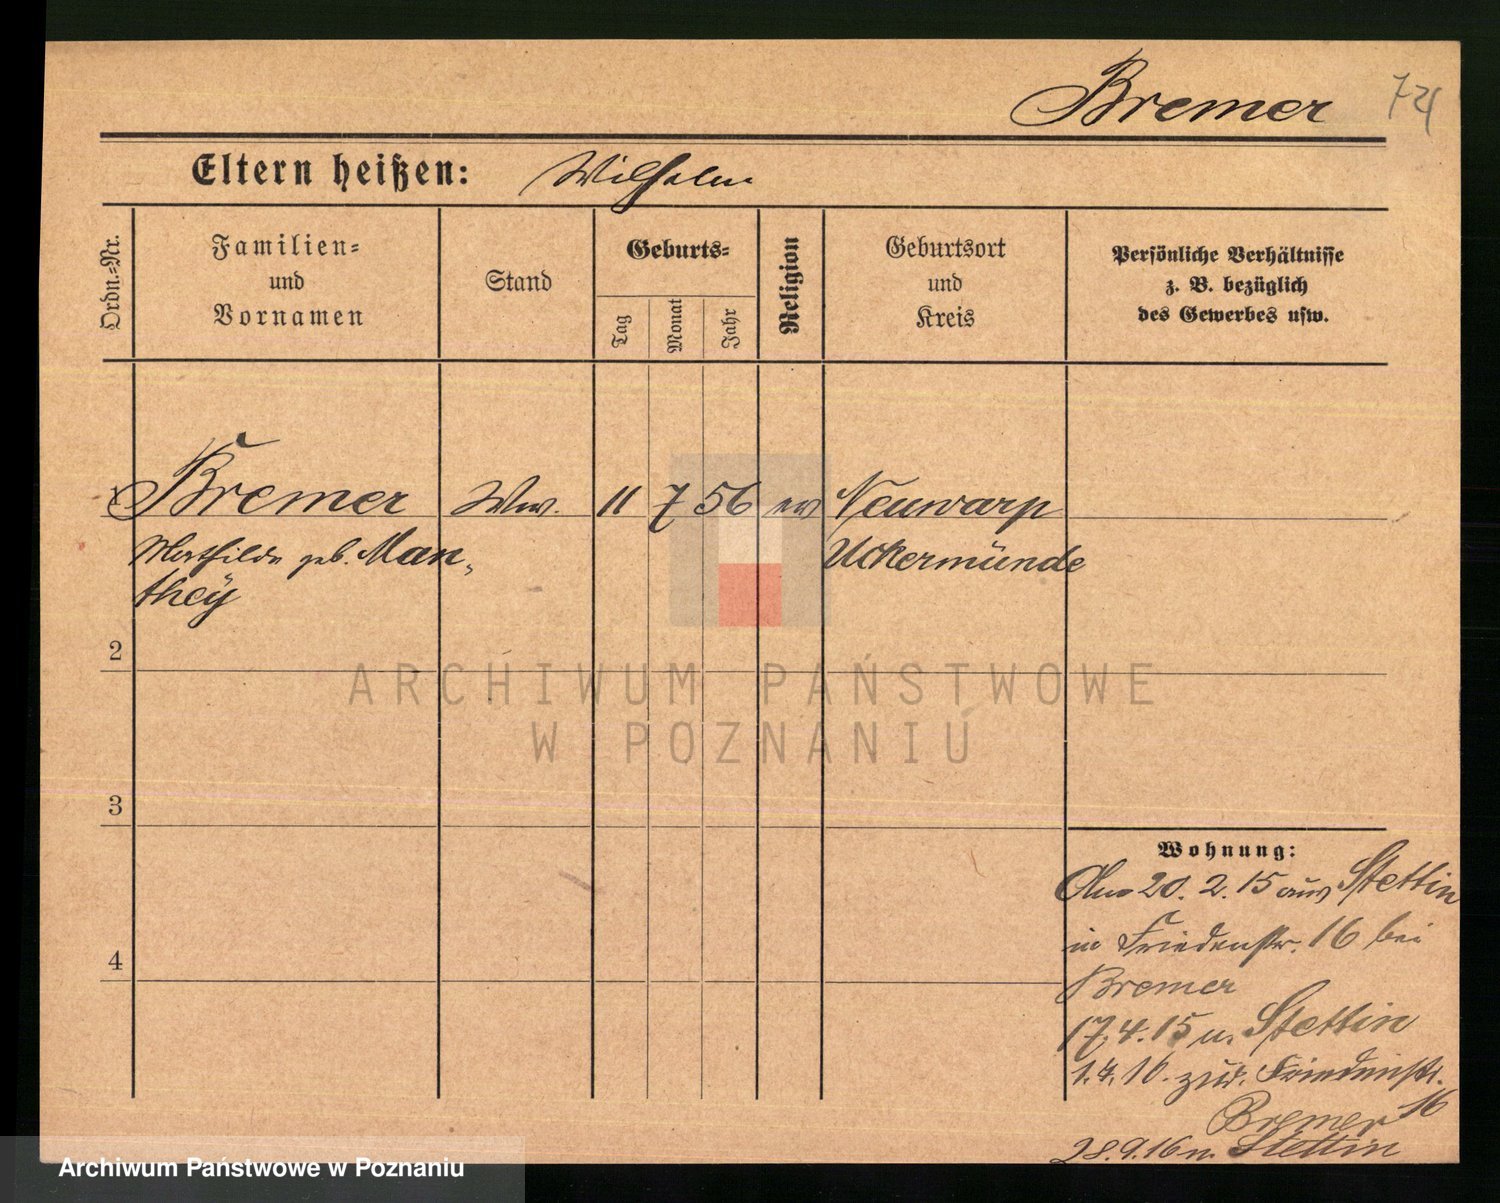 Bremer 74
Eltern heißen: Wilhelm
Ordn.=Nr.
Familien=
und
Vornamen
Stand
Geburts=
Tag
Monat
Jahr
Religion
Geburtsort
und
Kreis
Persönliche Verhältnisse
z. B. bezüglich
des Gewerbes usw.
1 Bremer Ww. 11 7 56 ev Neuwarp
Mathilde geb. Man-
they
Uckermünde
2
ARCHIWUM PAŃSTWOWE
W POZNANIU
3
4
Wohnung:
20. 2. 15 aus Stettin
in Friedenstr. 16 bei
Bremer
17.4.15 n. Stettin
1.7.16. zur. Friedenstr.
16
Bremer
28.9.16 n. Stettin
Archiwum Państwowe w Poznaniu